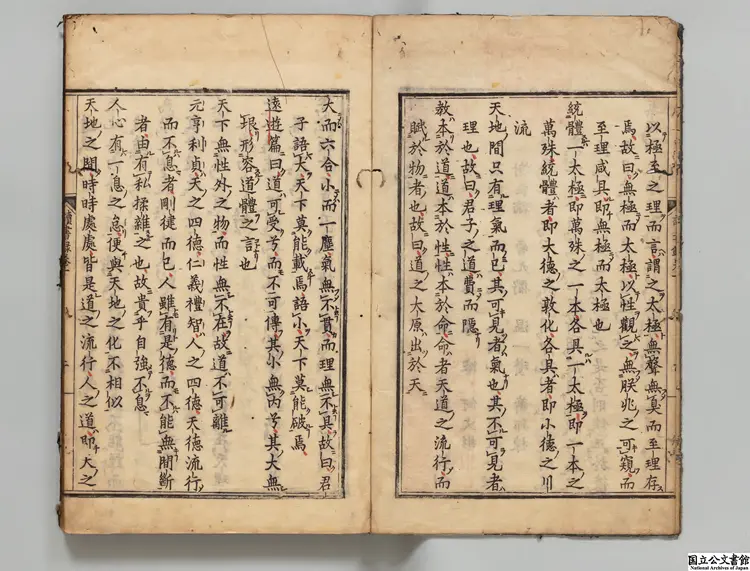 以極至之理而言謂之太極無聲無臭而至理存
焉故曰無極而太極以性觀之無朕兆之可窺而
至理咸具即無極而太極也
統體一太極即萬殊之一本各具一太極即一本之
萬殊統體者即大德之敦化各具者即小德之川
流
天地間只有理氣而已其可見者氣也其不可見者
理也故曰君子之道費而隱
教本於道道本於性性本於命命者天道之流行而
賦於物者也故曰道之大原出於天
大而六合小而一塵氣無不貫而理無不具故曰君
子語大天下莫能載焉語小天下莫能破焉
遠遊篇曰道可受兮而不可傳其小無内兮其大無
垠形容道體之言也
天下無性外之物而性無不在故道不可離
元亨利貞天之四德仁義禮智人之四德天德流行
而不息者剛健而已人雖有是德而不能無間斷
者由有私揉雜之也故貴乎自強不息
人心有一息之怠便與天地之化不相似
天地之間時時處處皆是道之流行人之道即天之
讀書錄卷
国立公文書館
National Archives of Japan